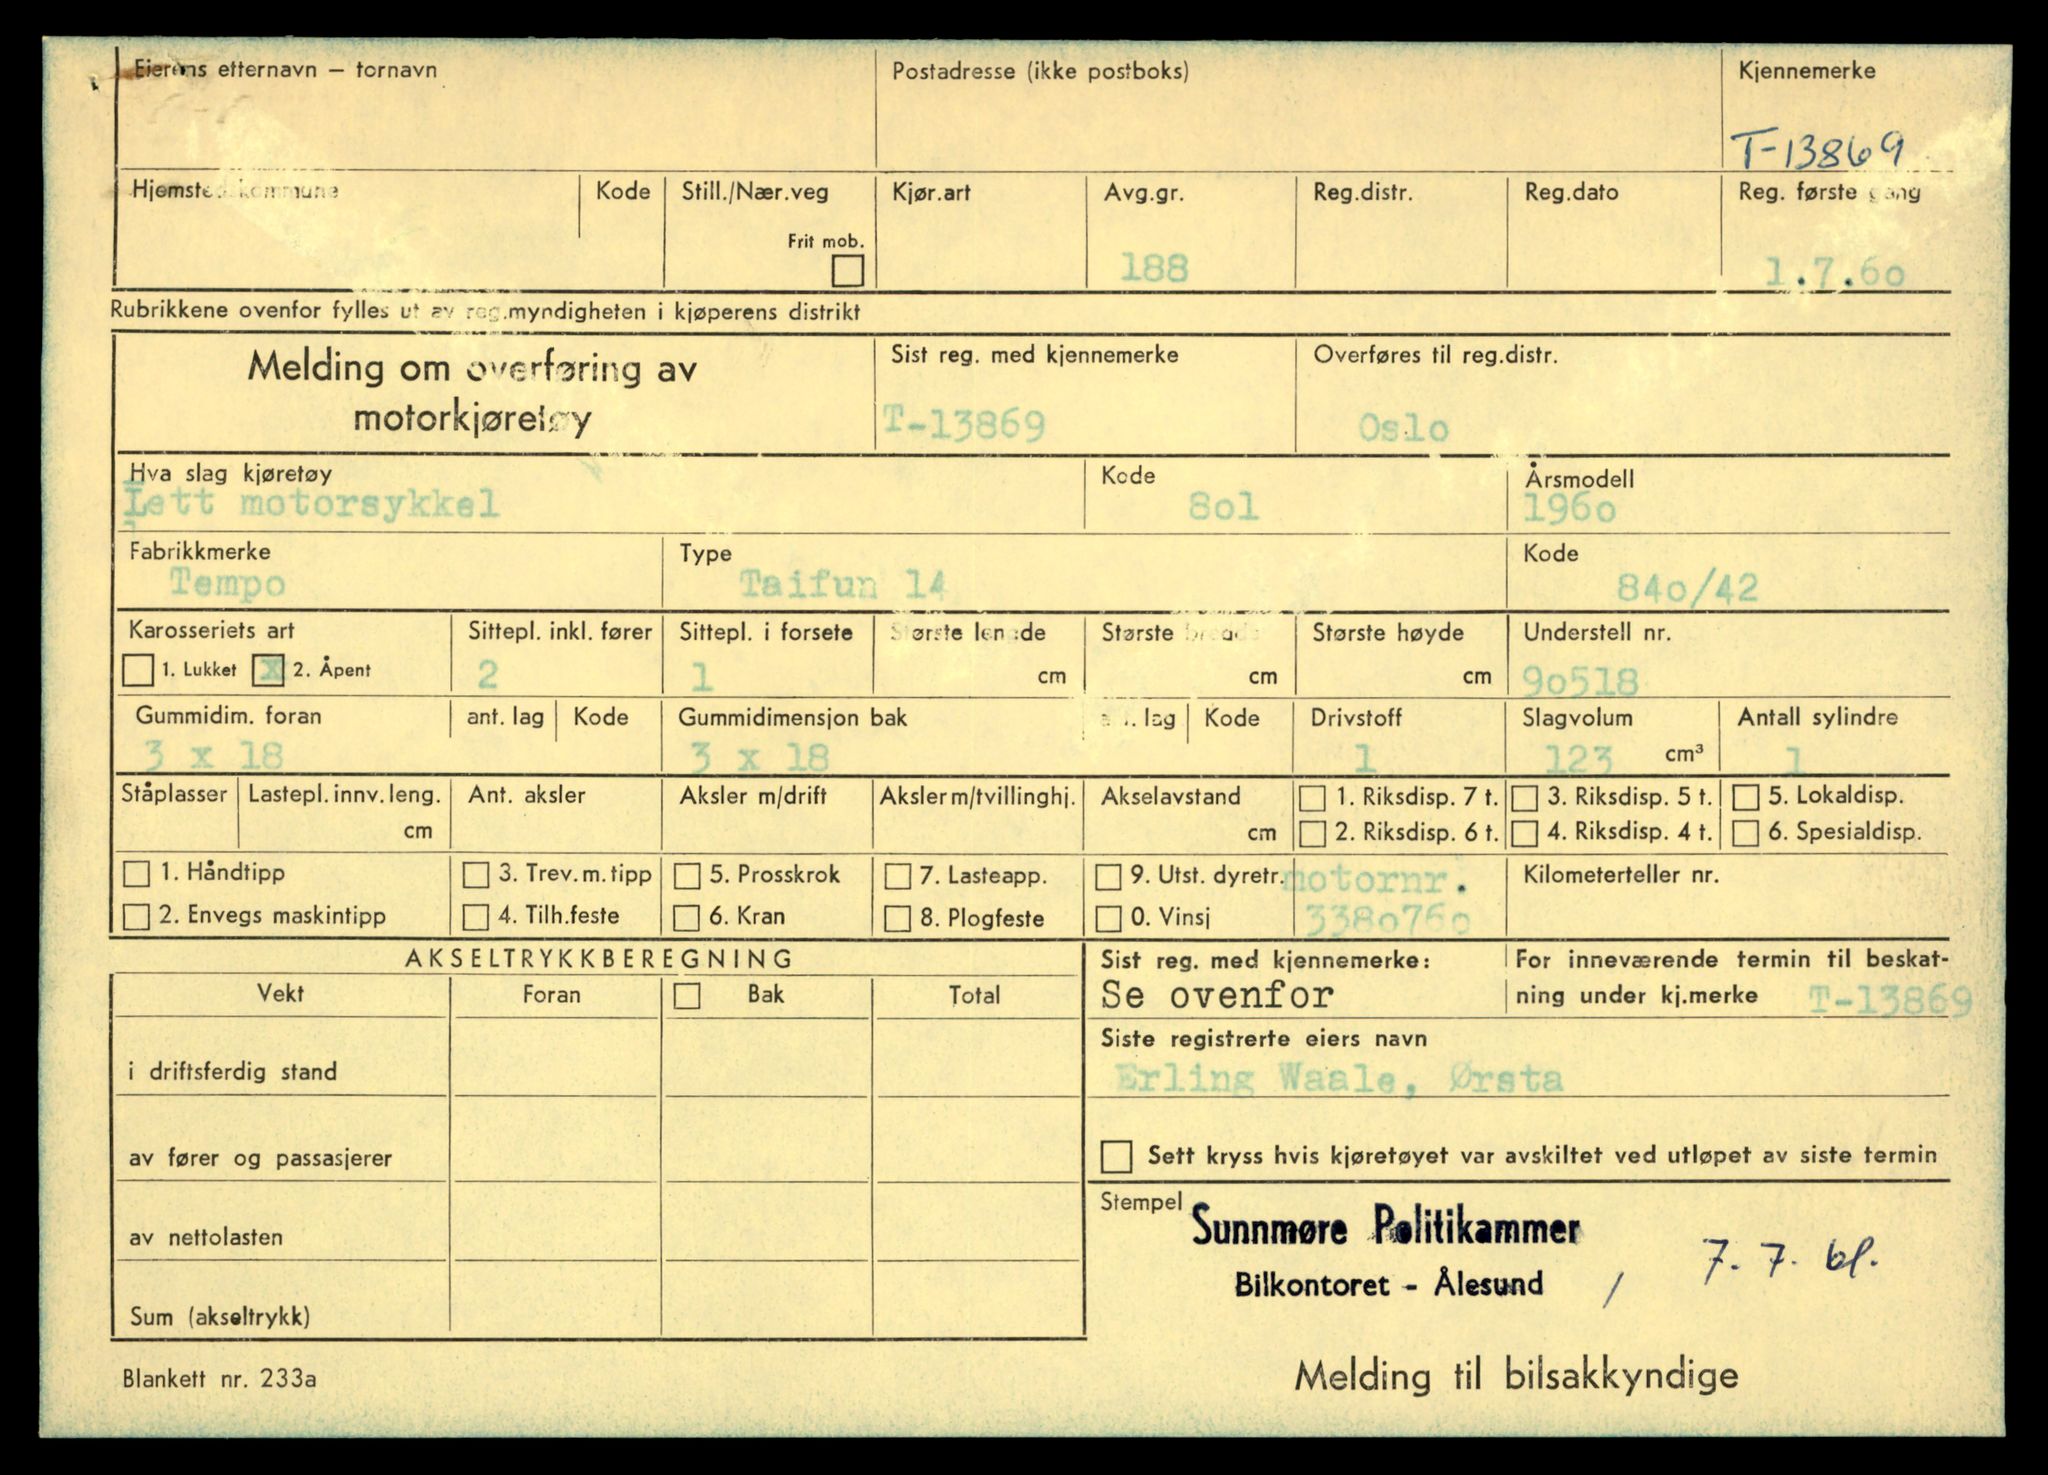 Eierens etternavn – fornavn Postadresse (ikke postboks) Kjennemerke
T-13869
Hjemstedskommune Kode Still./Nær.veg Kjør.art Avg.gr. Reg.distr. Reg.dato Reg. første gang
Frit mob.
188 1.7.60
Rubrikkene ovenfor fylles ut av reg.myndigheten i kjøperens distrikt
Melding om overføring av motorkjøretøy
Sist reg. med kjennemerke Overføres til reg.distr.
T-13869 Oslo
Hva slag kjøretøy Kode Årsmodell
Lett motorsykkel 8o1 196o
Fabrikkmerke Type Kode
Tempo Taifun 14 84o/42
Karosseriets art Sittepl. inkl. fører Sittepl. i forsete Største lengde Største bredde Største høyde Understell nr.
1. Lukket X 2. Åpent 2 1 cm cm cm 9o518
Gummidim. foran ant. lag Kode Gummidimensjon bak ant. lag Kode Drivstoff Slagvolum Antall sylindre
3 x 18 3 x 18 1 123 cm³ 1
Ståplasser Lastepl. innv. leng. Ant. aksler Aksler m/drift Aksler m/tvillinghj. Akselavstand 1. Riksdisp. 7 t. 3. Riksdisp. 5 t. 5. Lokaldisp.
cm cm 2. Riksdisp. 6 t. 4. Riksdisp. 4 t. 6. Spesialdisp.
1. Håndtipp 3. Trev. m. tipp 5. Prosskrok 7. Lasteapp. 9. Utst. dyretr. motornr. Kilometerteller nr.
2. Envegs maskintipp 4. Tilh.feste 6. Kran 8. Plogfeste 0. Vinsj 338o76o
AKSELTRYKKBEREGNING Sist reg. med kjennemerke: For inneværende termin til beskat-
Vekt Foran Bak Total Se ovenfor ning under kj.merke T-13869
Siste registrerte eiers navn
i driftsferdig stand Erling Waale, Ørsta
av fører og passasjerer Sett kryss hvis kjøretøyet var avskiltet ved utløpet av siste termin
Stempel
av nettolasten Sunnmøre Politikammer
Bilkontoret - Ålesund / 7. 7. 61.
Sum (akseltrykk)
Blankett nr. 233a Melding til bilsakkyndige